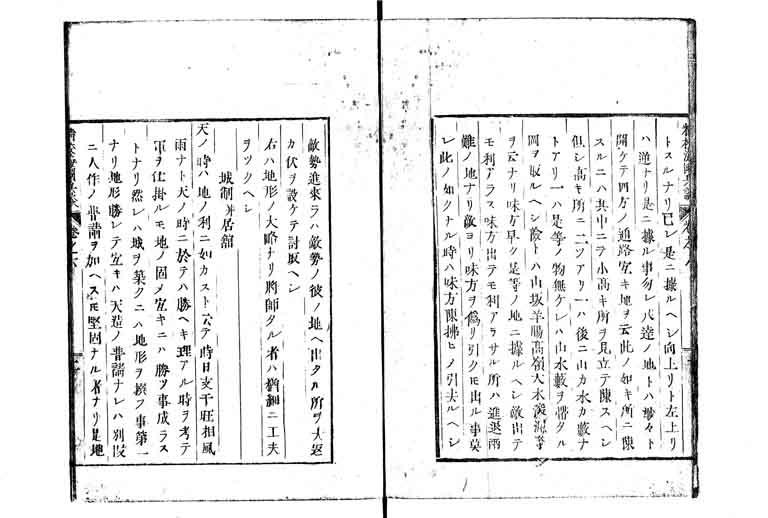 トスルナリ已レ是ニ據ルヘシ向上リト左上リ
ハ道ナリ是ニ據ル事勿レ八達ノ地トハ渺々ト
開ケテ四方ノ通路宜キ地ヲ云此ノ如キ所ニ陳
スルニハ其中ニテ小高キ所ヲ見立テ陳スヘシ
但シ高キ所ニ二ツアリ一ハ後ニ山カ水カ藪ナ
トアリ一ハ是等ノ物無ケレハ山水藪ヲ帶タル
岡ヲ取ルヘシ險トハ山坂羊腸高嶺大木
ヲ云ナリ味方早ク是等ノ地ニ據ルヘシ敵出テ
モ利アラス味方出テモ利アラサル所ハ進退兩
難ノ地ナリ敵ヨリ味方ヲ偽リ引クモ出ル事莫
レ此ノ如クナル時ハ味方陳拂ヒノ引夫ルヘシ
敵勢進來ラハ敵勢ノ彼ノ地ヘ出タル所ヲ大返
カ伏ヲ設ケテ討取ヘシ
右ハ地形ノ大略ナリ將師タル者ハ猶細ニ工夫
ヲツクヘシ
城制并居舘
天ノ時ハ地ノ利ニ如カスト云テ時日支干旺相風
雨ナト天ノ時ニ於テハ勝ヘキ理アル時ヲ考テ
軍ヲ仕掛ルモ地ノ固メ宜キニハ勝ツ事成ラス
トナリ然レハ城ヲ築クニハ地形ヲ撰フ事第一
ナリ地形勝レテ宜キハ天造ノ普請ナレハ別段
ニ人作ノ普請ヲ加ヘスモ堅固ナル者ナリ是地
卷之六